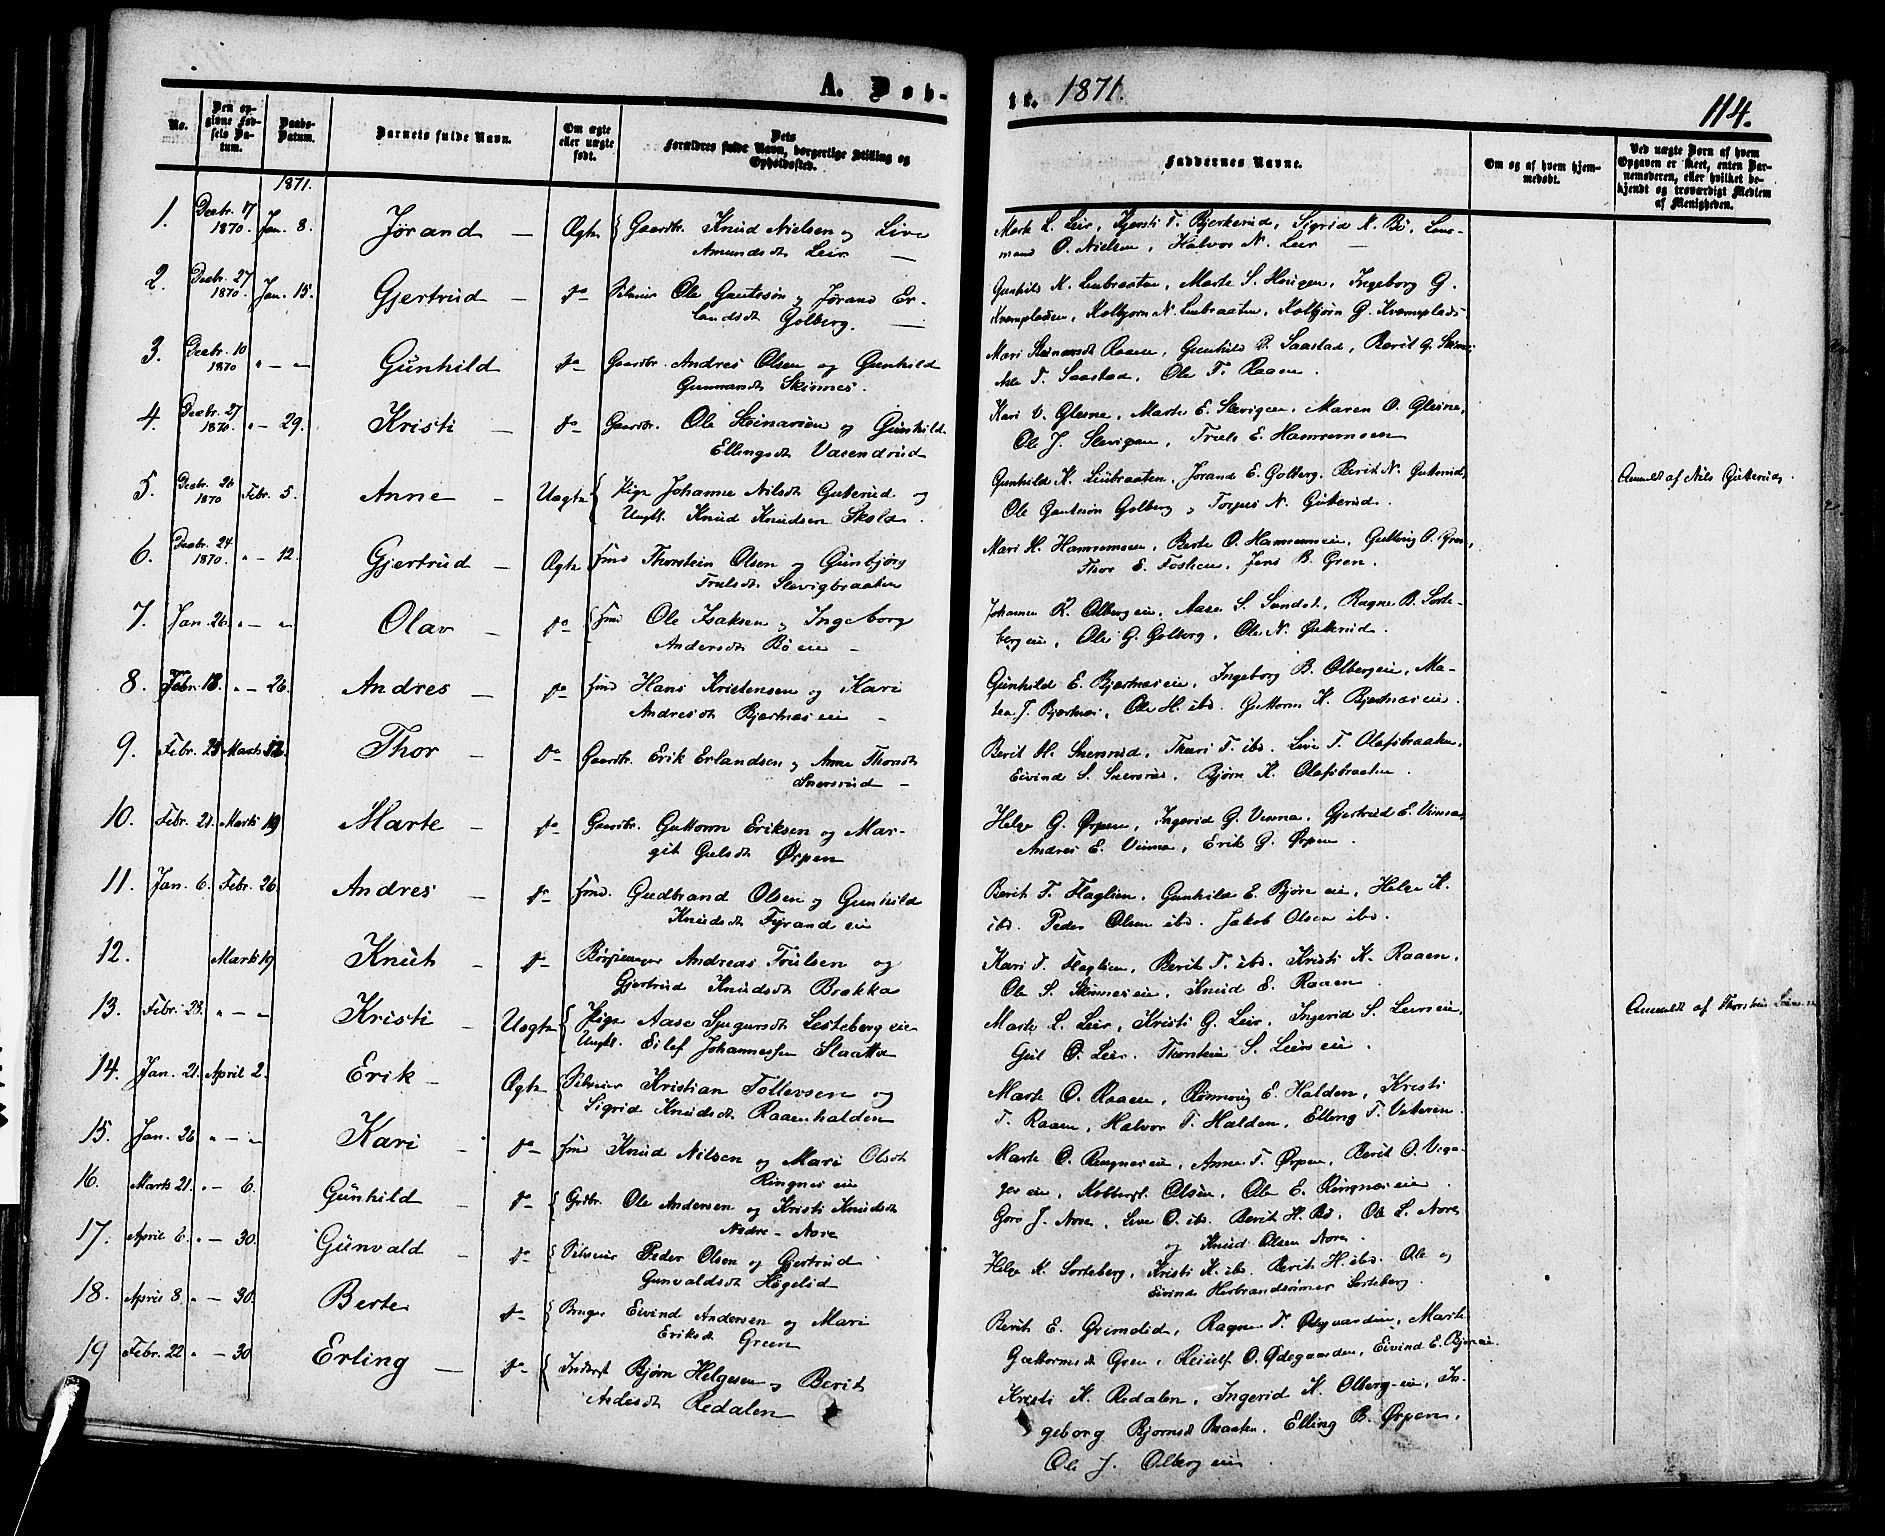 A. Døb-
te. 1871.
114.
No.
Den op-
givne Fød-
sels Da-
tum.
Daabs-
Datum.
Barnets fulde Navn.
Om ægte
eller uægte
født.
Dets
Forældres fulde Navn, borgerlige Stilling og
Opholdssted.
Faddernes Navne.
Om og af hvem hjem-
medøbt.
Ved uægte Børn af hvem
Opgaven er skeet, enten Bar-
nemoderen, eller hvilket be-
kjendt og troværdigt Medlem
af Menigheden.
1871.
1. Decbr. 17 1870. Jan. 8. Jørand — Ægte Gaardbr. Knud Nielsen og Live
Amundsdt Leir —
Marte L. Leir, Kjersti T. Bjerkerud, Sigrid K. Bø, Lens-
mand O. Nielsen, Halvor N. Leir —
2. Decbr. 27 1870. Jan. 15. Gjertrud — do Selveier Ole Gautesøn og Jørand Er-
landsdt Golberg. —
Gunhild K. Linbraaten, Marte S. Haugen, Ingeborg G.
Kræmpladsen, Kolbjørn N. Linbraaten, Kolbjørn G. Kræmplads
3. Decbr. 10 1870 " — " Gunhild do Gaardbr. Andres Olsen og Gunhild
Gunnarsdt Skinnes.
Mari Steinarsdt Raaen, Gunhild T. Saastad, Berit G. Skinnes
Asle T. Saastad, Ole T. Raaen
4. Decbr. 27 1870. " — 29. Kristi — do Gaardbr. Ole Steinarsen og Gunhild
Ellingsdt Vasendrud
Kari V. Glesne, Marte E. Slevigen, Maren O. Glesne,
Ole J. Slevigen, Truls E. Hamremoen
5. Decbr. 26 1870 Febr. 5. Anne — Uægte Pige Johanne Nilsdt Guterud og
Ungk. Knud Knudsen Skold.
Gunhild K. Linbraaten, Jørand E. Golberg, Berit N. Gutterud,
Ole Gautesøn Golberg, Torger N. Guterud.
Anmeldt af Nils Guterud.
6. Decbr. 24 1870. " — 12. Gjertrud — Ægte Hmd Thorstein Olsen og Gunbjørg
Trulsdt Slevigbraaten
Mari H. Hamremoen, Berte O. Hamremoen, Guttorm O. Gren,
Thor E. Fosheim, Jens B. Gren.
7. Jan. 26. " — " Olav — do Hmd Ole Isaksen og Ingeborg
Andersdt Bøeie —
Johanne K. Olbergeie, Aase S. Sandst., Ragne B. Sorte-
bergeie, Ole G. Golberg, Ole N. Guterud.
8. Febr. 18. " — 26. Andres — do Hmd Hans Kristensen og Kari
Andresdt Bjertneseie —
Gunhild E. Bjertneseie, Ingeborg B. Olbergeie, Ma-
thea J. Bjertnes, Ole H. ibd. Guttorm K. Bjertneseie.
9. Febr. 23 Marts 12. Thor — do Gaardbr. Erik Erlandsen og Anne Thorsdt
Snersrud —
Berit H. Snersrud, Thuri T. ibd. Live T. Olafsbraaten,
Eivind S. Snersrud, Bjørn K. Olafsbraaten.
10. Febr. 21. Marts 19 Marte — do Gaardbr. Guttorm Eriksen og Mar-
git Gulsdt Ørpen
Helge G. Ørpen, Ingerid G. Vinna, Gjertrud E. Vinna,
Andres E. Vinna, Erik G. Ørpen.
11. Jan. 6. Febr. 26. Andres — do Hmd. Gudbrand Olsen og Gunhild
Knudsdt Fyrandeie
Berit T. Flaglien, Gunhild E. Bjøreeie, Helge K.
ibd. Peder Olsen ibd. Jakob Olsen ibd.
12. Marts 19 Knut — do Andreas Trulsen og
Gjertrud Knudsdt Brekka
Kari T. Flaglien, Berit T. ibd. Kristi K. Raaen,
Ole S. Skinneseie, Knud E. Raaen.
13. Febr. 23. " — " Kristi — Uægte Pige Aase Sjugursdt Lesteberg eie
Ungk. Eilef Johannessen Slaatta
Marte L. Leir, Kristi G. Leir, Ingerid S. Leirseie,
Gul O. Leir. Thorstein S. Leirseie.
Anmeldt af Thorstein Leirseie
14. Jan. 21. April 2. Erik — Ægte Selveier Kristian Tollevsen og
Sigrid Knudsdt Raaenhalden
Marte O. Raaen, Rønnaug E. Halden, Kristi
T. Raaen, Halvor T. Halden, Elling T. Veteren.
15. Jan. 26 " — " Kari — do Hmd Knud Nilsen og Mari Olsdt
Ringneseie
Marte O. Ringneseie, Anne T. Ørpen, Berit O. Vega-
gereie, Kolbergt. Olsen, Ole E. Ringneseie.
16. Marts 21. " — 6. Gunhild — do Gdbr. Ole Andersen og Kristi Knudsdt
Nedre-Nore
Goro J. Nore, Live O. ibd. Berit H. Bø, Ole L. Nore
og Knud Olsen Nore.
17. April 6. " — 30. Gunvald — do Selveier Peder Olsen og Gjertrud
Gunvaldsdt Høgelid
Helge K. Sorteberg, Kristi K. ibd. Berit H. ibd. Ole og
Eivind Herbrandsønner Sorteberg.
18. April 8. " — 30. Berte do Bruger Eivind Andersen og Mari
Eriksdt Green
Berit E. Grimelid, Ragne T. Ødegaarden, Marte
Guttormsdt Gren, Reiulf O. Ødegaarden, Eivind E. Bjøreeie.
19 Febr. 22 " — 30 Erling — do Inderst Bjørn Helgesen og Berit
Andersdt Redalen
Kristi K. Redalen, Ingerid K. Olberg-eie, In-
geborg Bjørnsdt Braaten, Elling B. Ørpen,
Ole J. Olbergeie.